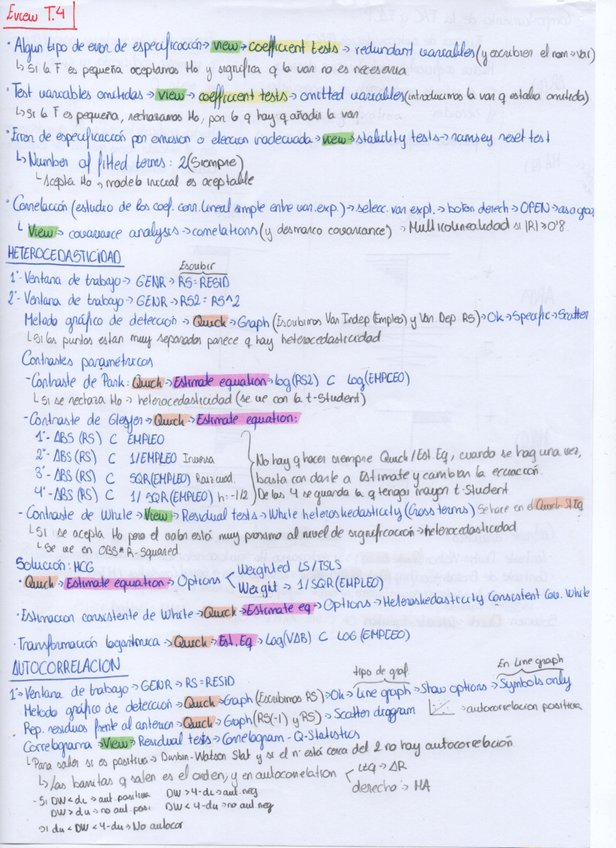 Eviews T.4
· Algún tipo de error de especificación → view → coefficient tests → redundant variables (y escribier el nom → var)
↳ Si la F es pequeña aceptamos Ho y significa q la var no es necesaria
· Test variables omitidas → view → coefficient tests → omitted variables (introducimos la var q estaba omitida)
↳ Si la F es pequeña, rechazamos Ho, por lo q hay q añadir la var.
· Error de especificación por omision o eleccion inadecuada → view → stability tests → ramsey reset test
↳ Number of fitted terms: 2 (Siempre)
↳ Acepta Ho → modelo inicial es aceptable
· Correlación (estudio de los coef. corr. lineal simple entre var. exp.) → selecc. var expl. → boton derech → OPEN → as a group
↳ View → covariance analysis → correlations (y desmarco covariance) → Multicolinealidad si |R| ≥ 0'8
HETEROCEDASTICIDAD
Escribir
1º- Ventana de trabajo → GENR → RS=RESID
2º- Ventana de trabajo → GENR → RS2 = RS^2
Metodo gráfico de detección → Quick → Graph (Escribimos Var Indep (Empleo) y Var Dep RS) → Ok → Specific → Scatter
↳ Si los puntos estan muy separados parece q hay heterocedasticidad
Contrastes paramétricos
- Contraste de Park: Quick → Estimate equation → log(RS2) C log(EMPLEO)
↳ Si se rechaza Ho → heterocedasticidad (se ve con la t-Student)
- Contraste de Glesjer → Quick → Estimate equation:
1º- ABS (RS) C EMPLEO
2º- ABS (RS) C 1/EMPLEO Inversa
3º- ABS (RS) C SQR(EMPLEO) Raiz cuad.
4º- ABS (RS) C 1/SQR(EMPLEO) h=-1/2
No hay q hacer siempre Quick/Est Eq, cuando se hag una vez,
basta con darle a Estimate y cambiar la ecuación.
De las 4 se guarda la q tenga mayor t-Student
- Contraste de White → View → Residual tests → White heteroskedasticity (Cross terms) Se hace en el Quick St Eq
↳ Si se acepta Ho pero el valor está muy proximo al nivel de significación → heterocedasticidad
↳ Se ve en OBS*R-Squared
Solución: MCG
· Quick → Estimate equation → Options
Weighted LS/TSLS
Weight → 1/SQR(EMPLEO)
· Estimacion consistente de White → Quick → Estimate eq → Options → Heteroskedasticity Consistent Cov. White
· Transformación logaritmica → Quick → Est. Eq → Log(VAB) C LOG (EMPLEO)
AUTOCORRELACION
tipo de graf
En Line graph
1º- Ventana de trabajo → GENR → RS=RESID
Metodo gráfico de detección → Quick → Graph (Escribimos RS) → Ok → Line graph → Show options → Symbols only
Rep. residuos frente al anterior → Quick → Graph (RS(-1) y RS) → Scatter diagram → autocorrelacion positiva
Correlograma → View → Residual tests → Correlogram - Q-Statistics
↳ Para saber si es positiva → Durbin-Watson Stat y si el nº está cerca del 2 no hay autocorrelación
↳ Las barritas q salen es el orden, y en autocorrelation
izq → AR
derecho → MA
- Si DW < dL → aut. positiva DW > 4-dL → aut. neg
DW > du → no aut. posi DW < 4-du → no aut neg
Si du < DW < 4-du → No autocor